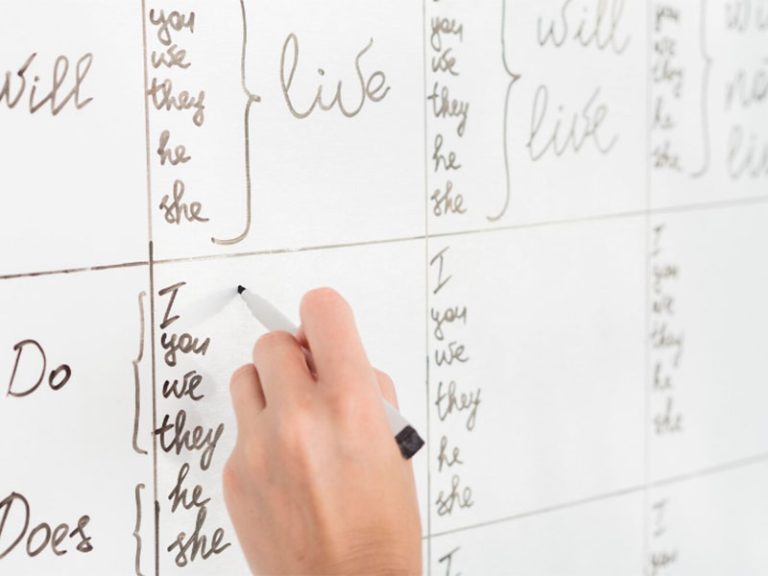 Will
you
we
they
he
she
live
you
we
they
he
she
will
live
you
we
they
he
she
Do
Does
I
you
we
they
he
she
I
you
we
they
he
she
I
you
we
they
he
she
I
I
you